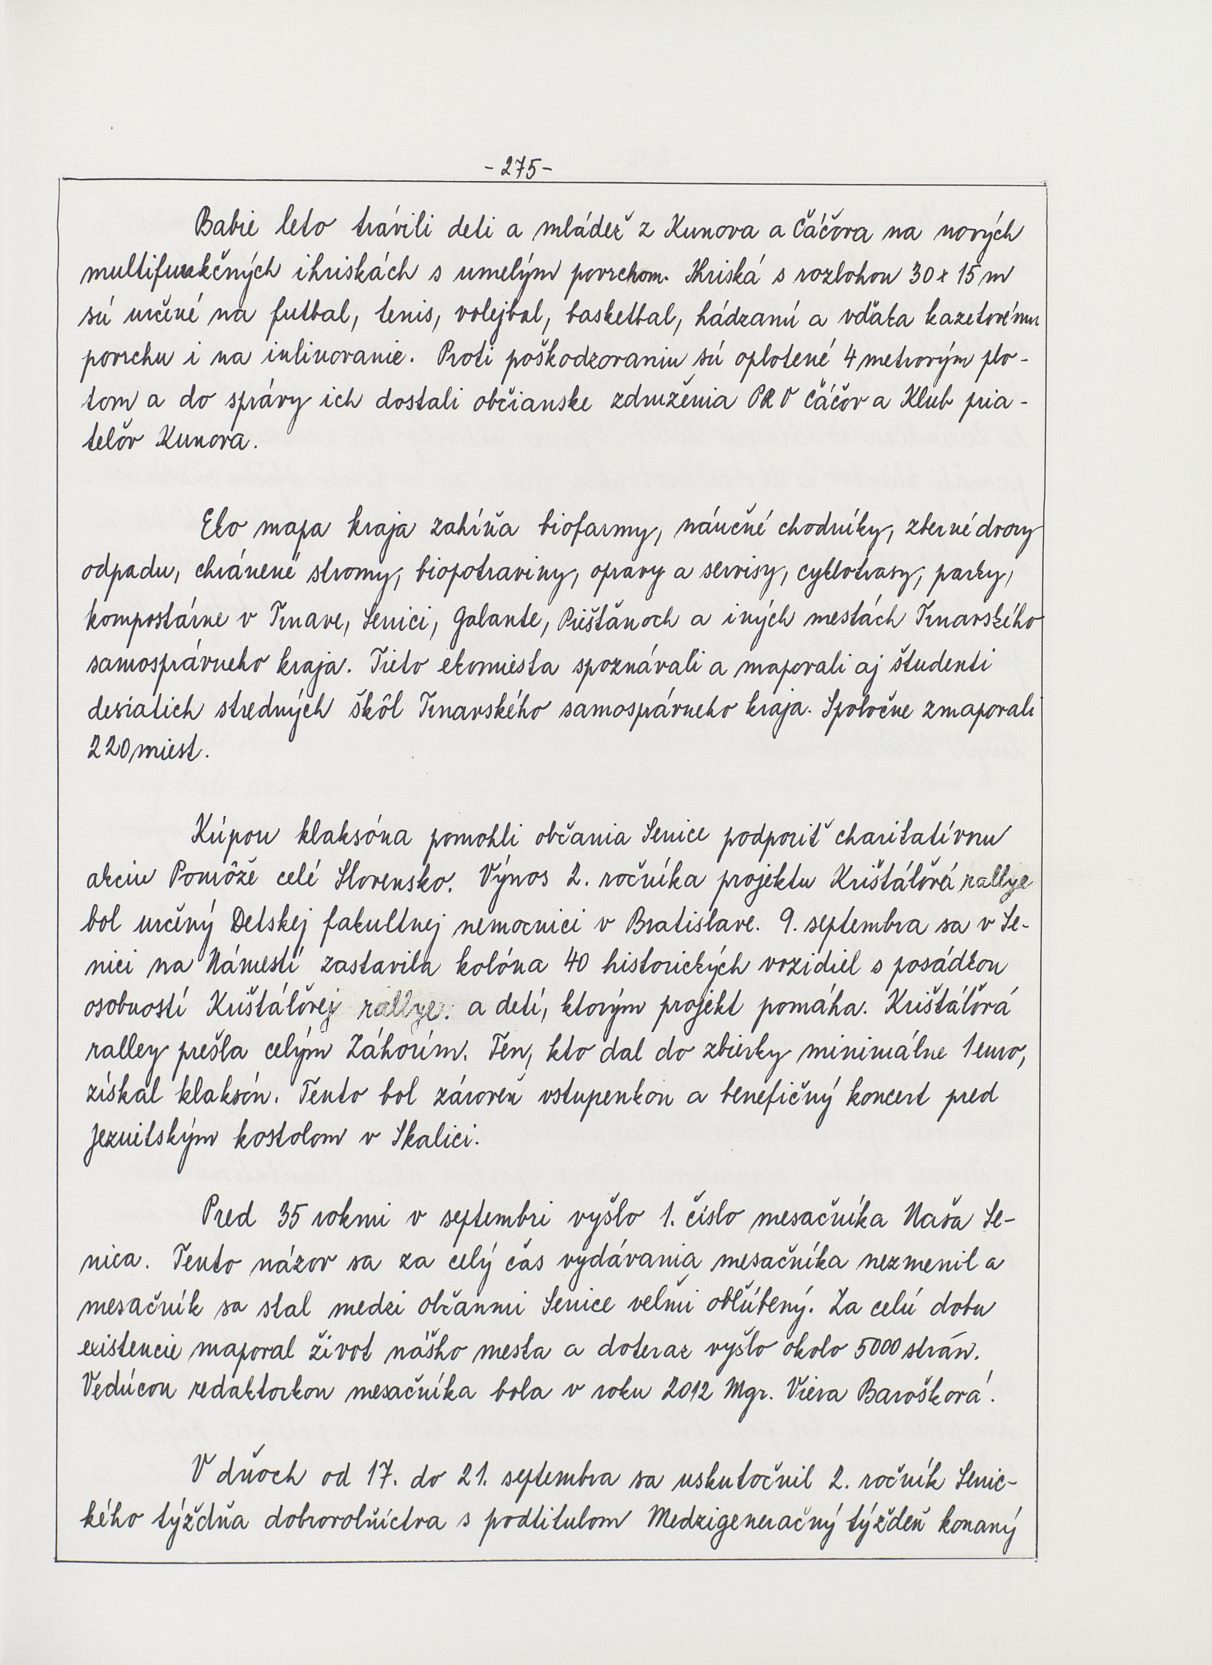 -275-
Babie leto trávili deti a mládež z Kunova a Čáčova na nových
multifunkčných ihriskách s umelým povrchom. Ihriská s rozlohou 30x15m
sú určené na futbal, tenis, volejbal, basketbal, hádzanú a vďaka kazetovému
povrchu i na inlinovanie. Proti poškodzovaniu sú oplotené 4 metrovým plo-
tom a do správy ich dostali občianske združenia PRO Čáčov a Klub pria-
teľov Kunova.
Eko mapa kraja zahíňa biofarmy, náučné chodníky, zberné dvory
odpadu, chránené stromy, biopotraviny, opravy a servisy, cyklotrasy, parky,
kompostárne v Trnave, Senici, Galante, Piešťanoch a iných mestách Trnavského
samosprávneho kraja. Tieto ekomiesta spoznávali a mapovali aj študenti
desiatich stredných škôl Trnavského samosprávneho kraja. Spoločne zmapovali
220 miest.
Kúpou klaksóna pomohli občania Senice podporiť charitatívnu
akciu Pomôže celé Slovensko. Výnos 2. ročníka projektu Krištáľová rallye
bol určený Detskej fakultnej nemocnici v Bratislave. 9. septembra sa v Se-
nici na Námestí zastavila kolóna 40 historických vozidiel s posádkou
osobností Krištáľovej rallye. a detí, ktorým projekt pomáha. Krištáľová
ralley prešla celým Záhorím. Ten, kto dal do zbierky minimálne 1 euro,
získal klaksón. Tento bol zároveň vstupenkou a benefičný koncert pred
Jezuitským kostolom v Skalici.
Pred 35 rokmi v septembri vyšlo 1. číslo mesačníka Naša Se-
nica. Tento názov sa za celý čas vydávania mesačníka nezmenil a
mesačník sa stal medzi občanmi Senice veľmi obľúbený. Za celú dobu
existencie mapoval život nášho mesta a doteraz vyšlo okolo 5000 strán.
Vedúcou redaktorkou mesačníka bola v roku 2012 Mgr. Viera Barošková.
V dňoch od 17. do 21. septembra sa uskutočnil 2. ročník Senic-
kého týždňa dobrovoľníctva s podtitulom Medzigeneračný týždeň konaný